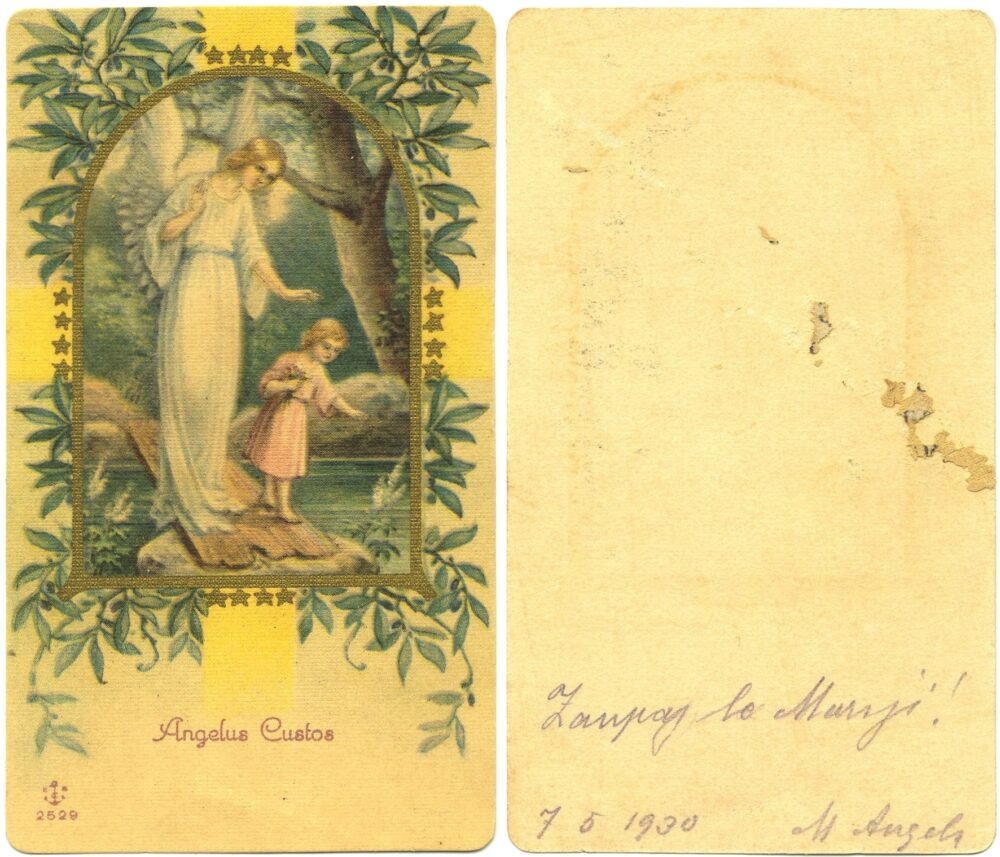 Angelus Custos
2529
Zaupaj le Mariji!
7 5 1930 M Angela